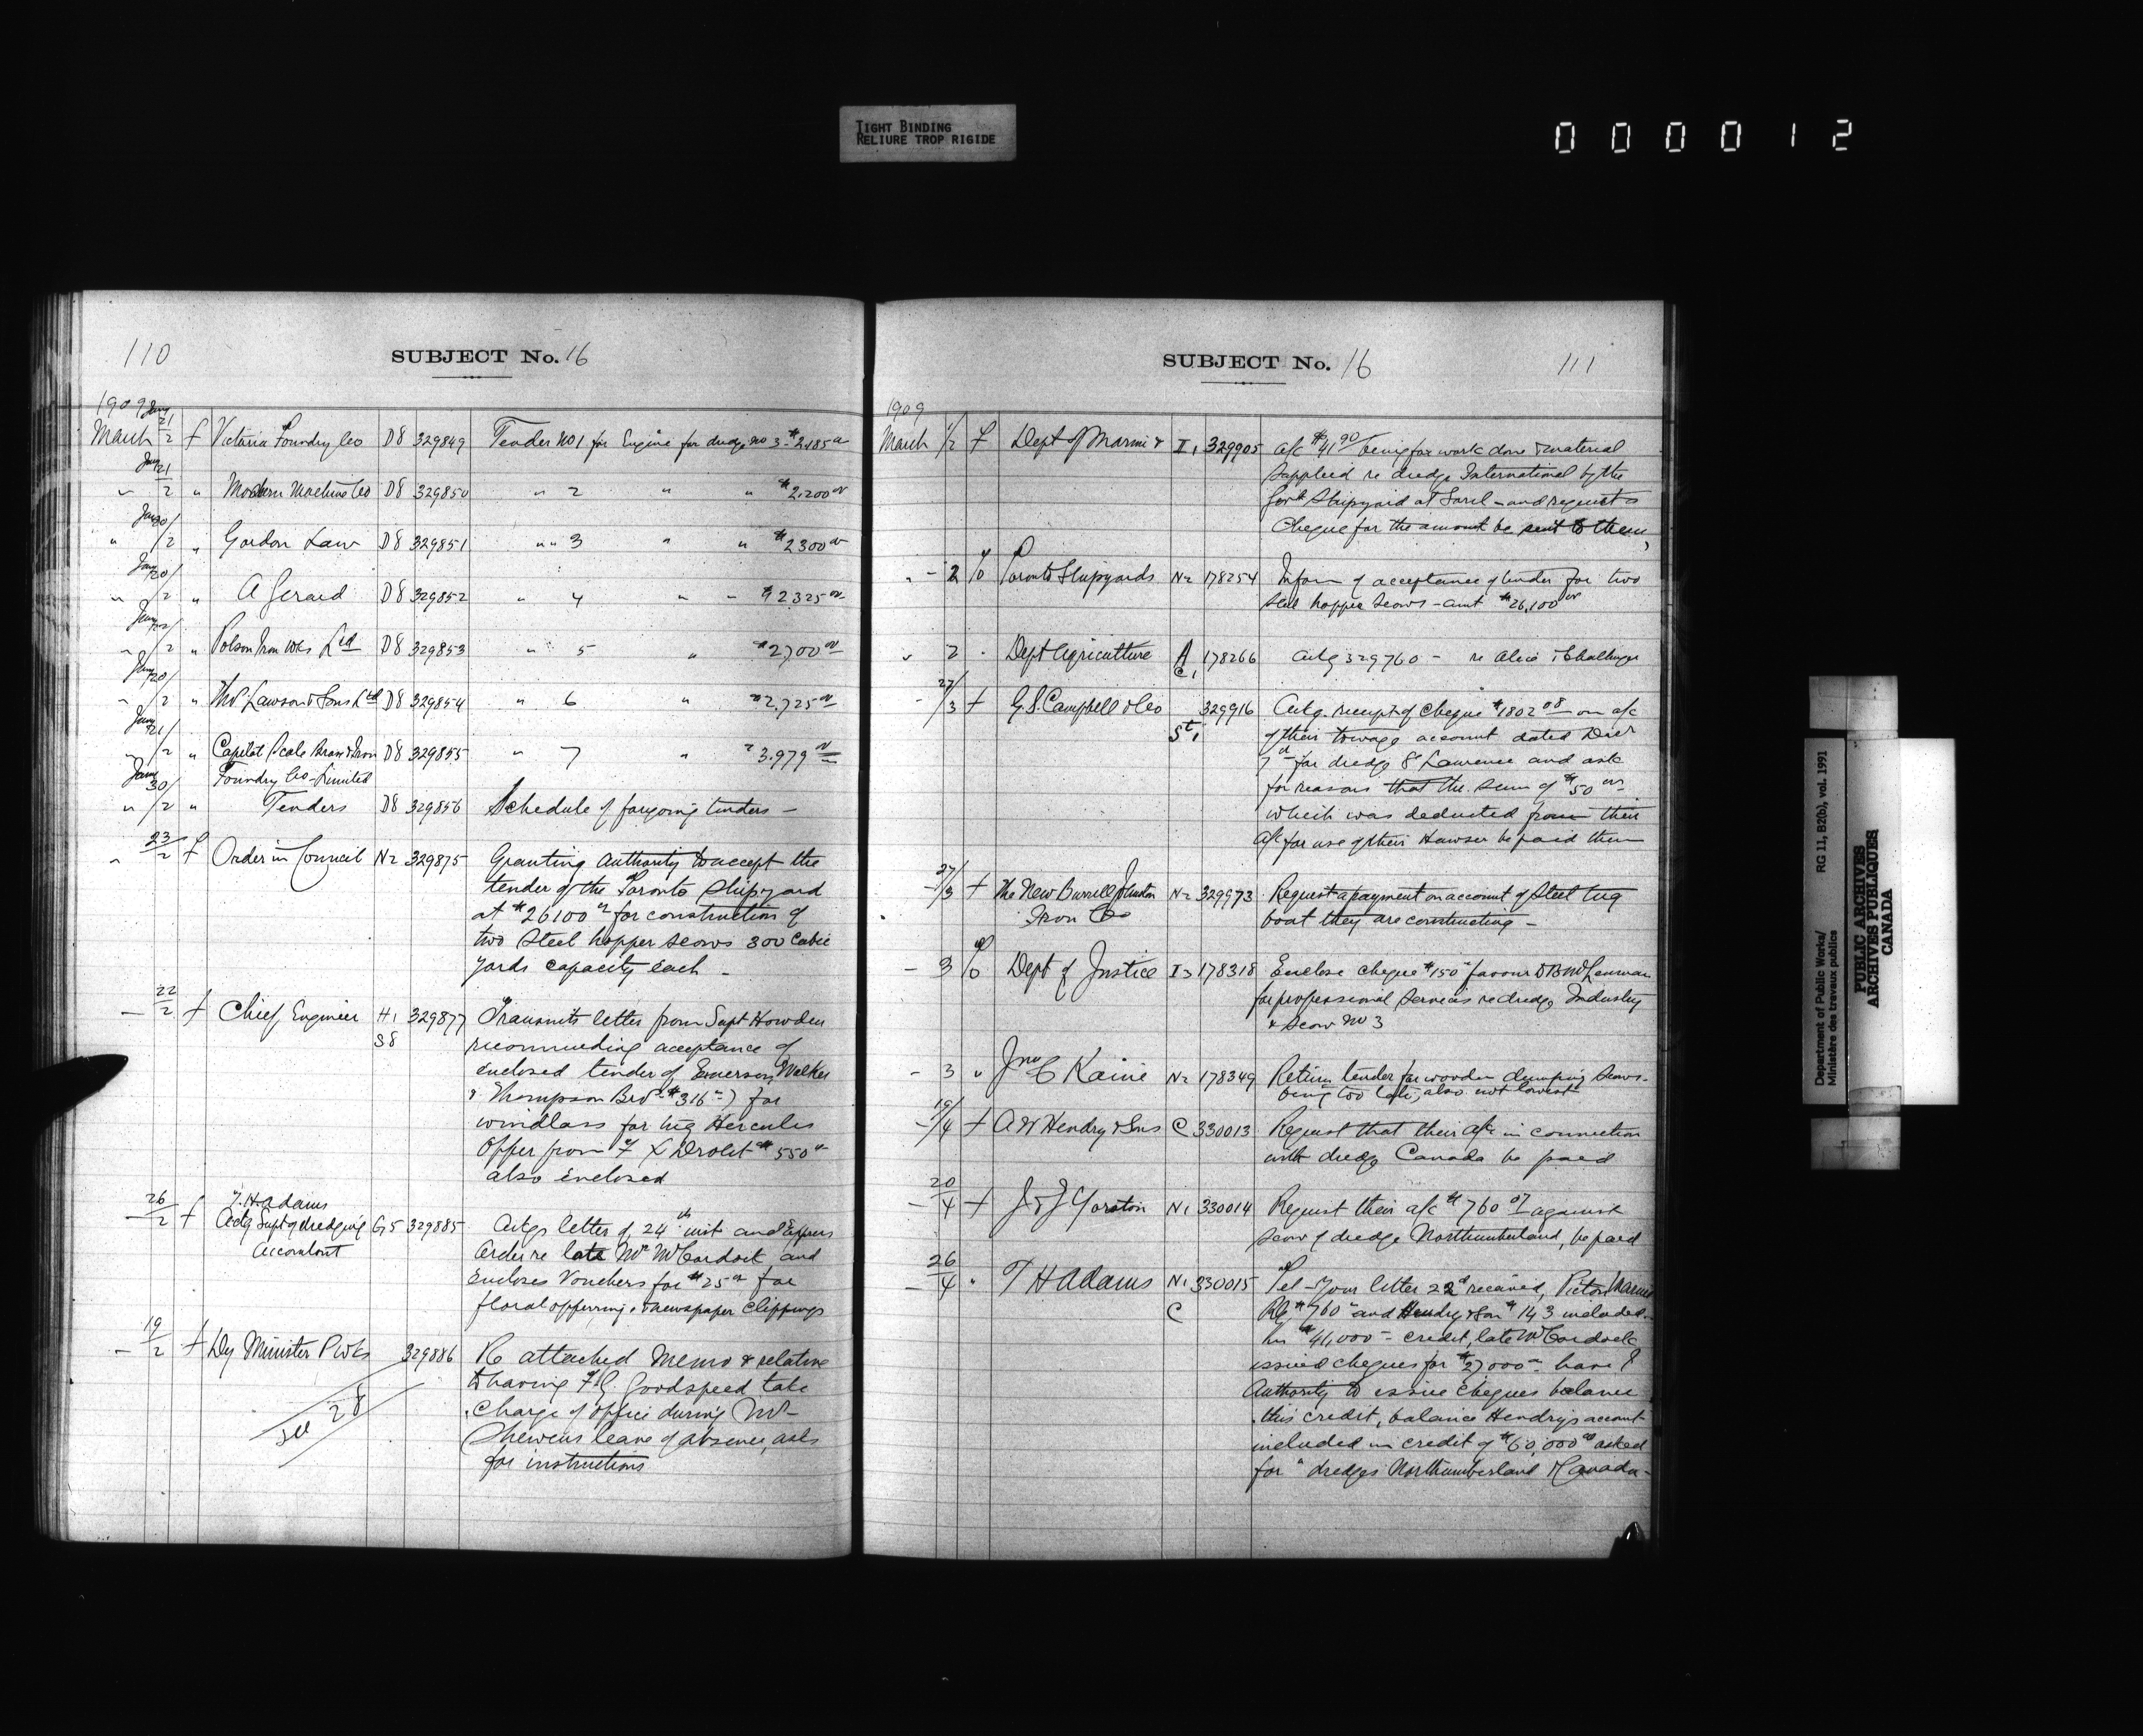 TIGHT BINDING
RELIURE TROP RIGIDE
000012
110
SUBJECT No. 16
1909
March Jany 21/2 f Victoria Foundry Co D8 329849 Tender No 1 for Engine for dredge no 3 - $2,185 00
Jany 21/2 " Modern Machine Co D8 329850 " 2 " " $2,200 00
Jany 30/2 " Gordon Law D8 329851 " " 3 " " $2300 00
Jany 20/2 " A Gerard D8 329852 " 4 " " $2325 00
Jany 22/2 " Polson Iron Wks Ltd D8 329853 " 5 " $2700 00
Jany 20/2 " Thos Lawson & Sons Ltd D8 329854 " 6 " $2,725 00
Jany 21/2 " Capital Scale Brass & Iron D8 329855 " 7 " $3.979 00
Foundry Co - Limited
Jany 30/2 " Tenders D8 329856 Schedule of foregoing tenders -
23/2 f Order in Council N2 329875 Granting authority to accept the
tender of the Toronto Shipyard
at $26100 00 for construction of
two Steel hopper scows 300 Cubic
yards capacity each -
22/2 f Chief Engineer H1 329877 Transmits letter from Supt Howden
S8 recommending acceptance of
enclosed tender of Emerson, Walker
& Thompson Bros - $316 -) for
windlass for tug Hercules
Offer from F X Drolet $550 00
also enclosed
26/2 f T. H Adams
Actg Supt of dredging G5 329885 Actgs letter of 24th inst and Express
Accountant Order re late Mr McCordock and
Encloses Vouchers for $25 00 for
floral offerring & newspaper clippings
19/2 f Dy Minister P Wks 329886 Re attached Memo & relative
to having F G. Goodspeed take
see 28 charge of office during Mr
Shewens leave of absence, asks
for instructions
SUBJECT No. 16
111
1909
March 1/2 f Dept of Marine & I1 329905 a/c $41 90/ being for work done & material
supplied re dredge International by the
Govt Shipyard at Sorel - and requests
Cheque for the amount be sent to them,
2 % Toronto Shipyards N2 178254 Inform of acceptance of tender for two
steel hopper scows - amt $26,100 00
2 " Dept Agriculture A 178266 Actg 329760 - re Alice & Challenger
C1
27/3 f G. S. Campbell & Co 329916 Actg. receipt of cheque $1802 08 on a/c
St1 of their towage account dated Decr
7th for dredge St Lawrence and ask
for reasons that the sum of $50 00
which was deducted from their
a/c for use of their Hawser be paid them
27/3 f The New Burrell Johnson N2 329973 Request a payment on account of Steel tug
Iron Co boat they are constructing -
3 % Dept of Justice I3 178318 Enclose cheque $150 favour
for professional services re dredge Industry
& Scow No 3
3 " Jno C Kaine N2 178349 Return tender for wooden dumping Scows -
being too late, also not lowest
19/4 f A W Hendry & Sons C 330013 Request that their a/c in connection
with dredge Canada be paid
20/4 f J & J Yorston N1 330014 Request their a/c $760 07 against
scow of dredge Northumberland, be paid
26/4 " T H Adams N1 330015 Tel - Your letter 22d received, Pictou Marine
C Ry $760 and Hendry & Son $143 included
in $41,000 - credit, late McCordock
issued cheques for $27000 - have I
authority to issue cheques balance
this credit, balance Hendrys account
included in credit of $60,000 00 asked
for " dredges Northumberland & Canada -
Department of Public Works/
Ministère des travaux publics
RG 11, B2(b), vol. 1991
PUBLIC ARCHIVES
ARCHIVES PUBLIQUES
CANADA